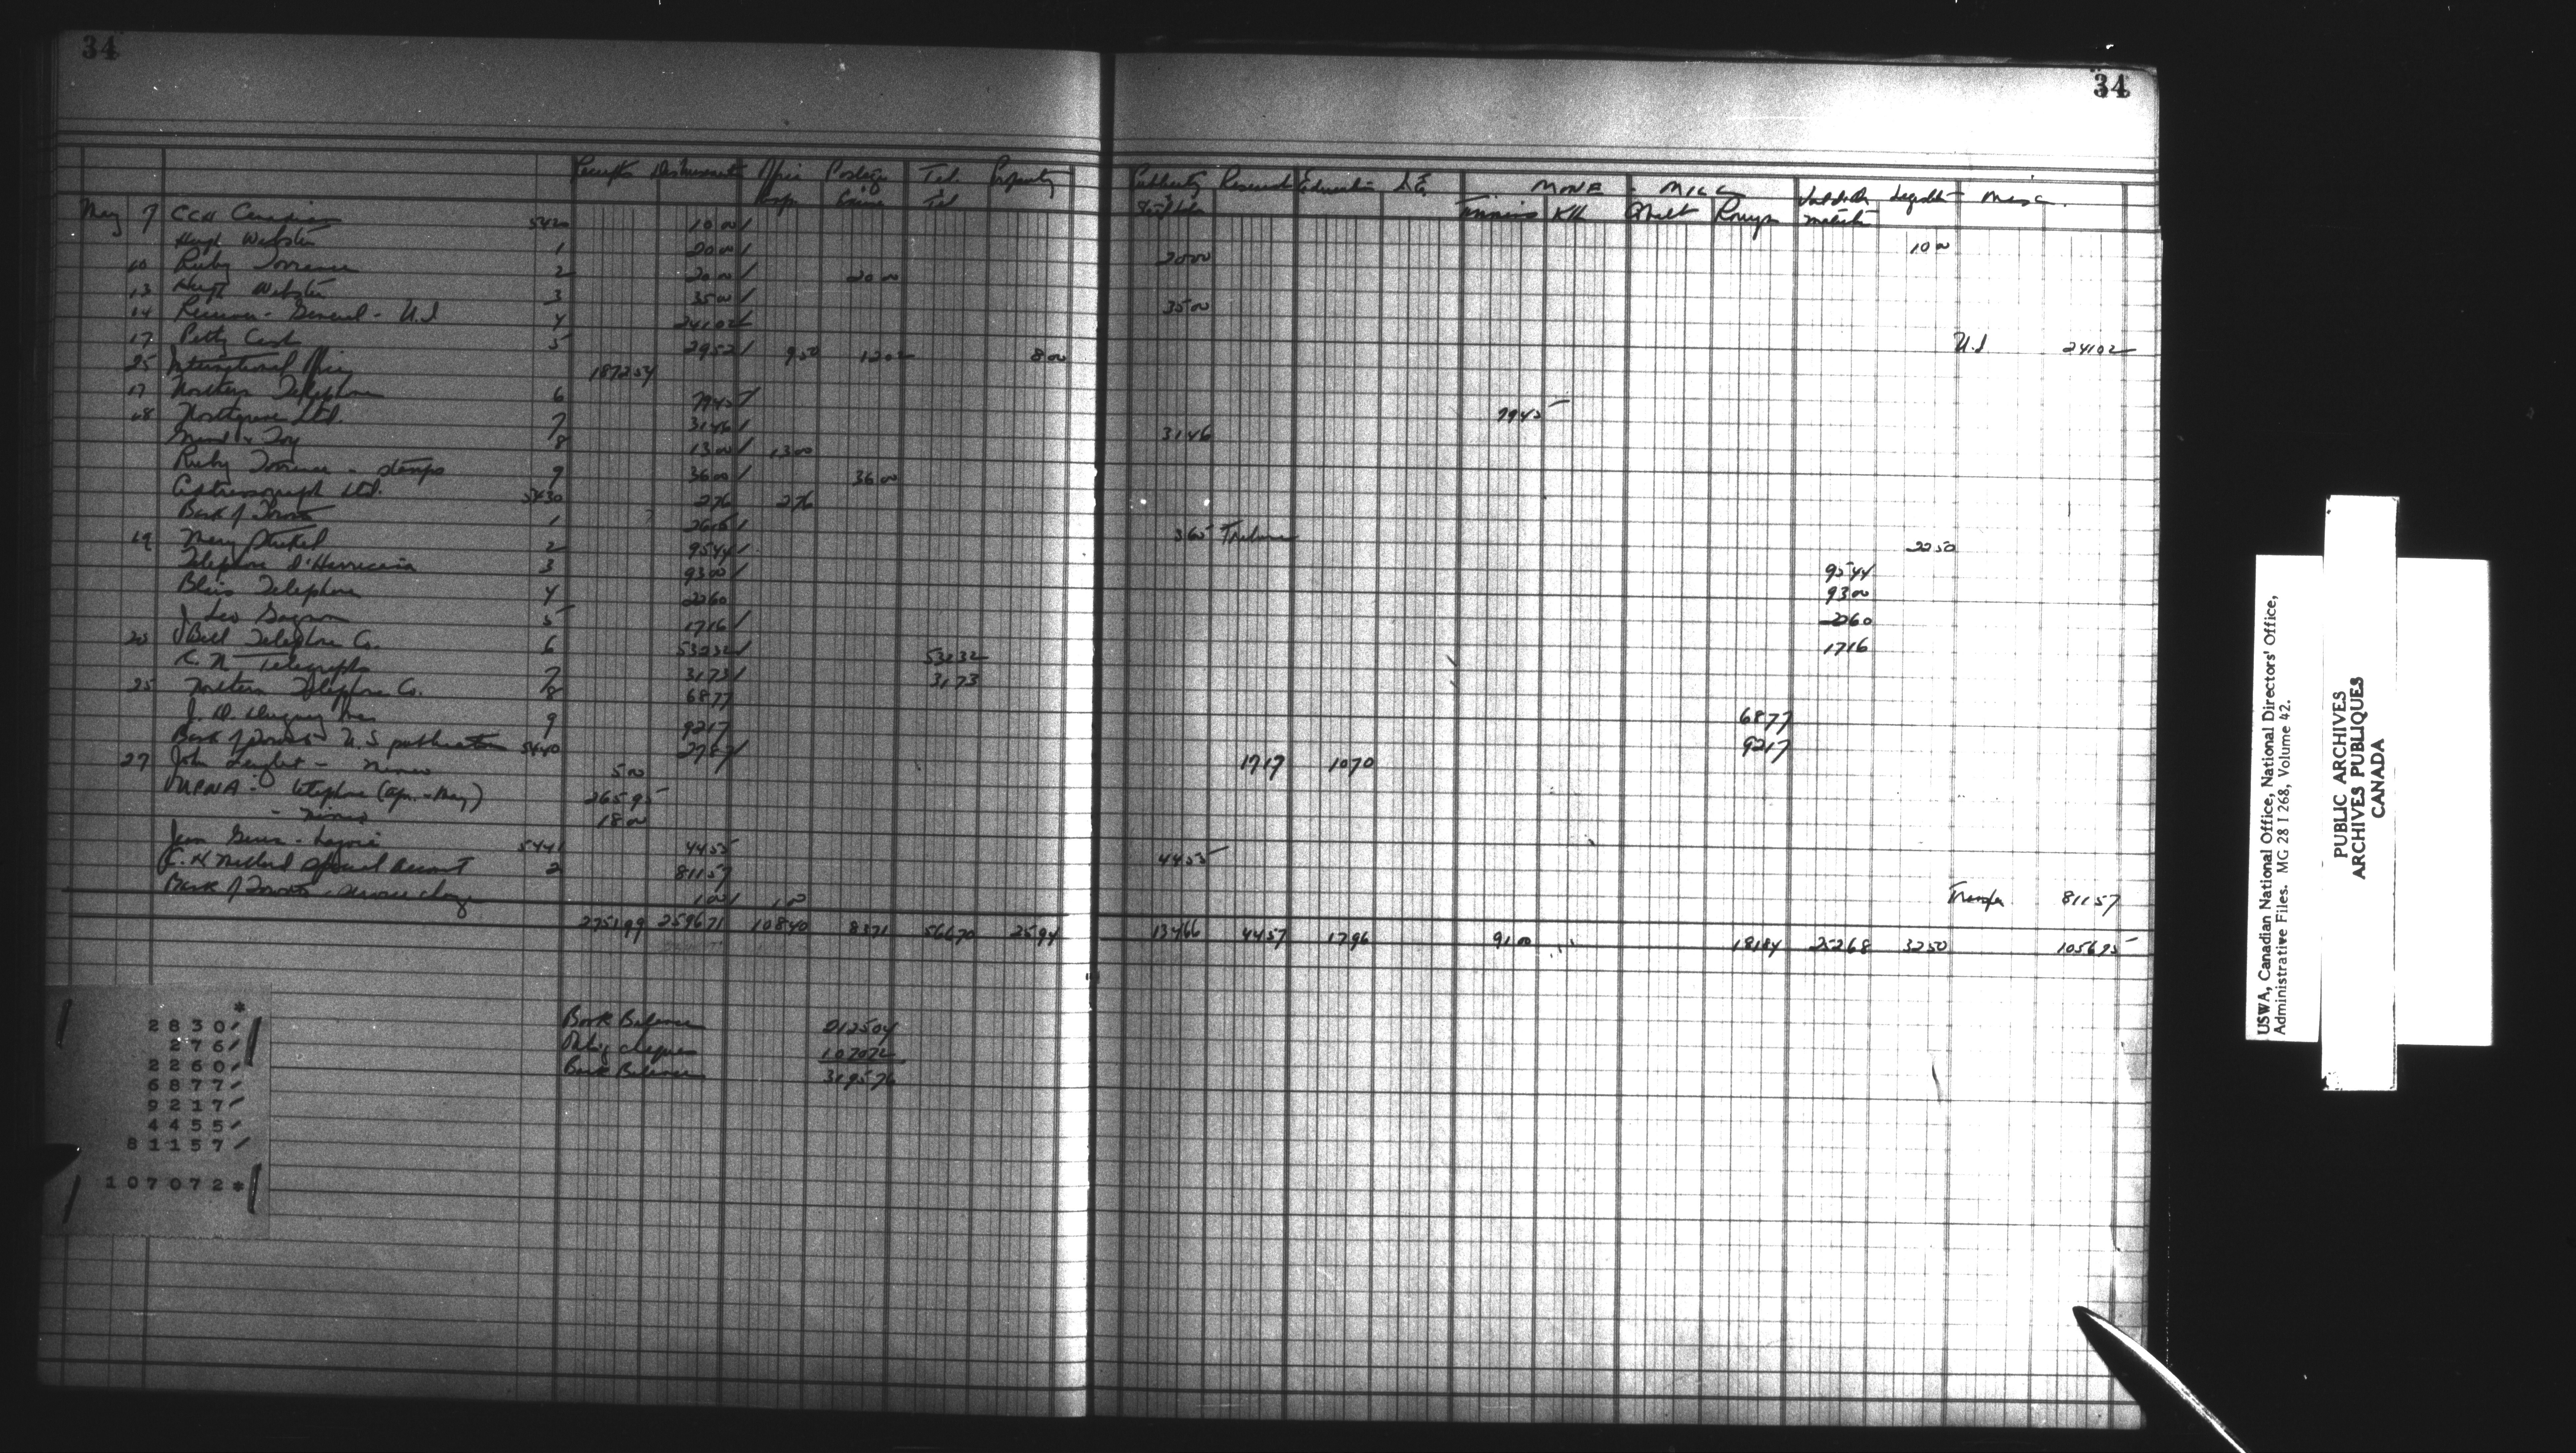 34
34
Receipts Disbursements Office Postage Tel Property Publicity Research Education L.E. MINE - MILL Legislation Misc.
Supp. Tel Timmins K.L. Cobalt Rouyn
May 7 CCH Canadian 5420 10 00 10 00
Hugh Webster 1 20 00 20 00
10 Ruby Torrance 2 20 00 20 00
13 Hugh Webster 3 35 00 35 00
14 Receiver-General - U.I 4 241 02 U.I. 241 02
17 Petty Cash 5 29 52 9 50 12 02 8 00
25 International Office 1872 54
17 Northern Telephone 6 79 45 79 45
18 Northgrave Ltd. 7 31 46 31 46
Grand & Toy 8 13 00 13 00
Ruby Torrance - stamps 9 36 00 36 00
Addressograph Ltd. 5430 2 76 2 76
Bank of Toronto 1 26 15 3 65 Tribune 22 50
19 Mary 2 95 44 95 44
Telephone d'Harricana 3 93 00 93 00
Blais Telephone 4 22 60 22 60
J. Leo Gagnon 5 17 16 17 16
20 Bell Telephone Co. 6 532 32 532 32
C.N. Telegraphs 7 31 73 31 73
25 Northern Telephone Co. 8 68 77 68 77
9 92 17 92 17
Bank of Toronto U.S. publications 5440 27 87 17 17 10 70
27 John - Mimeo 5 00
- telephone (Apr. - May) 265 95
- Mimeo 18 00
5441 44 55 44 55
C.H. Millard Special Account 2 811 57 Transfer 811 57
Bank of Toronto - service charge 1 00 1 00
2751 99 2596 71 108 40 83 71 566 70 25 94 134 66 44 57 17 96 91 00 181 84 252 68 32 50 1056 95
Book Balance 2125 04
Outstg cheques 1070 72
Bank Balance 3195 76
*
2830
276
2260
6877
9217
4455
81157
107072*
USWA, Canadian National Office, National Directors' Office,
Administrative Files. MG 28 I 268, Volume 42.
PUBLIC ARCHIVES
ARCHIVES PUBLIQUES
CANADA